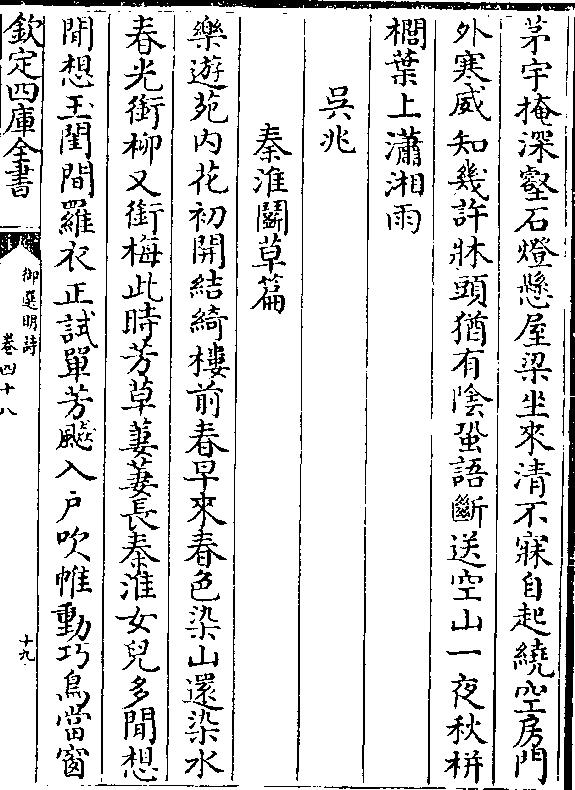 茅宇掩深壑石燈懸屋梁坐來清不寐自起繞空房門
外寒威知幾許牀頭猶有陰蛩語斷送空山一夜秋栟
櫚葉上瀟湘雨
吳兆
秦淮鬬草篇
樂遊苑内花初開結綺樓前春早來春色染山還染水
春光銜柳又銜梅此時芳草萋萋長秦淮女兒多閒想
閒想玉閨間羅衣正試單芳飈入戶吹帷動巧鳥當窗
欽定四庫全書
御選明詩
卷四十八
十九